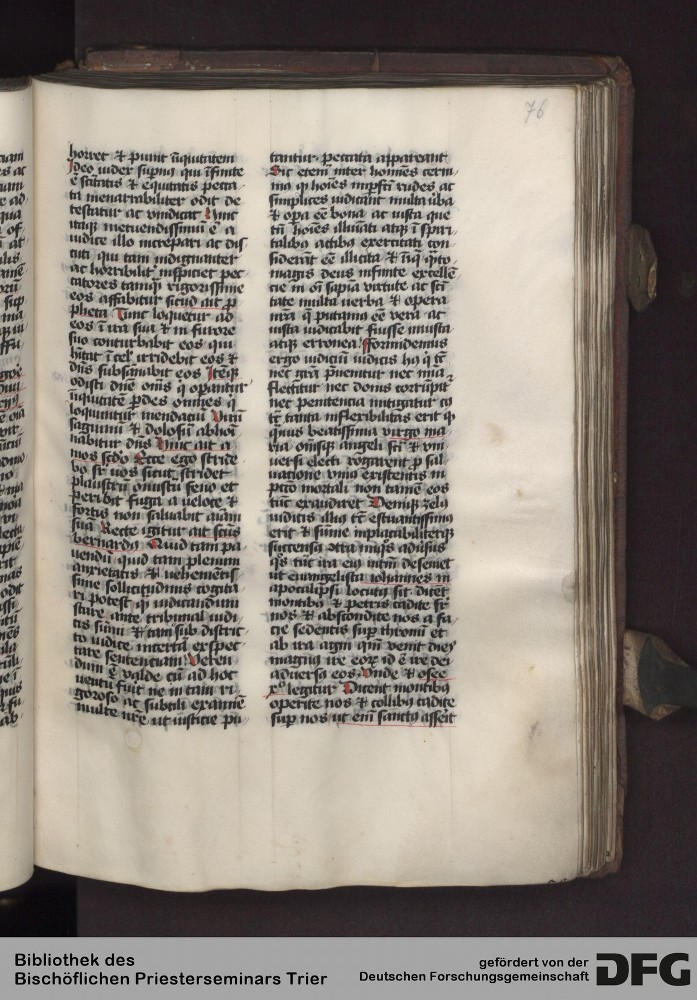 76
horret et punit iniquitatem
Ideo iudex supremus qui infinite
est sanctitatis et equitatis pecca
ta inenarrabiliter odit de
testatur ac vindicat Hinc
itaque metuendissimum est a
iudice illo increpari ac dis
cuti qui tam indignanter
ac horribiliter inspiciet pec
catores tamque rigorissime
eos affabitur sicud ait pro
pheta Tunc loquetur ad
eos in ira sua et in furore
suo conturbabit eos qui
habitat in celis irridebit eos et
dominus subsannabit eos Itemque
odisti domine omnes qui operantur
iniquitatem perdes omnes qui
loquuntur mendacium Virum
sanguinum et dolosum abhomi
nabitur dominus Hinc ait a
mos Ecce ego stride
bo super vos sicut stridet
plaustrum onustum feno et
peribit fuga a veloce et
fortis non saluabit animam
suam Recte igitur ait sanctus
bernardus Quid tam pa
uendum quid tam plenum
anxietatis et vehementis
sime sollicitudinis cogita
ri potest quam iudicandum
stare ante tribunal iudi
cis summi et tam sub distric
to iudice incertam exspec
tare sententiam Veren
dum est valde cum ad hoc
uentum fuit ne in tam ri
goroso ac subtili examine
multe nostre ut iusticie pu
tantur peccata appareant
Sic etenim inter homines cerni
mus quod homines imperfecti rudes ac
simplices iudicant multa verba
et opera esse bona ac iusta que
tamen homines illuminati atque in spiri
talibus actibus exercitati con
siderant esse illicita et iniqua quanto
magis deus infinite excellen
cie in omni sapientia virtute ac sancti
tate multa uerba et opera
nostra que putamus esse vera ac
iusta iudicabit fuisse iniusta
atque erronea Formidemus
ergo iudicium iudicis huius qui tunc
nec gratia preuenitur nec misericordia
flectitur nec donis corrumpitur
nec penitencia mitigatur cuius
tunc tanta inflexibilitas erit quod
quamuis beatissima virgo ma
ria omnesque angeli sancti et vni
uersi electi rogarent pro sal
uatione vnius existentis in
peccato mortali non tamen eos
tunc exaudiret Denique zelus
iudicis illius tunc estuantissimus
erit et sine implacabiliterque
succensa contra iniquos aduersus
quos tunc ira eius non desinet
ut euangelista iohannes in
apocalipsi locutus sit dicent
montibus et petris cadite super
nos et abscondite nos a fa
cie sedentis super thronum et
ab ira agni quoniam venit dies
magnus ire eorum id est ire dei
aduersus eos Vnde et osee
x legitur Dicent montibus
operite nos et collibus cadite
super nos ut enim sanctus asserit
Bibliothek des
Bischöflichen Priesterseminars Trier
gefördert von der
Deutschen Forschungsgemeinschaft
DFG